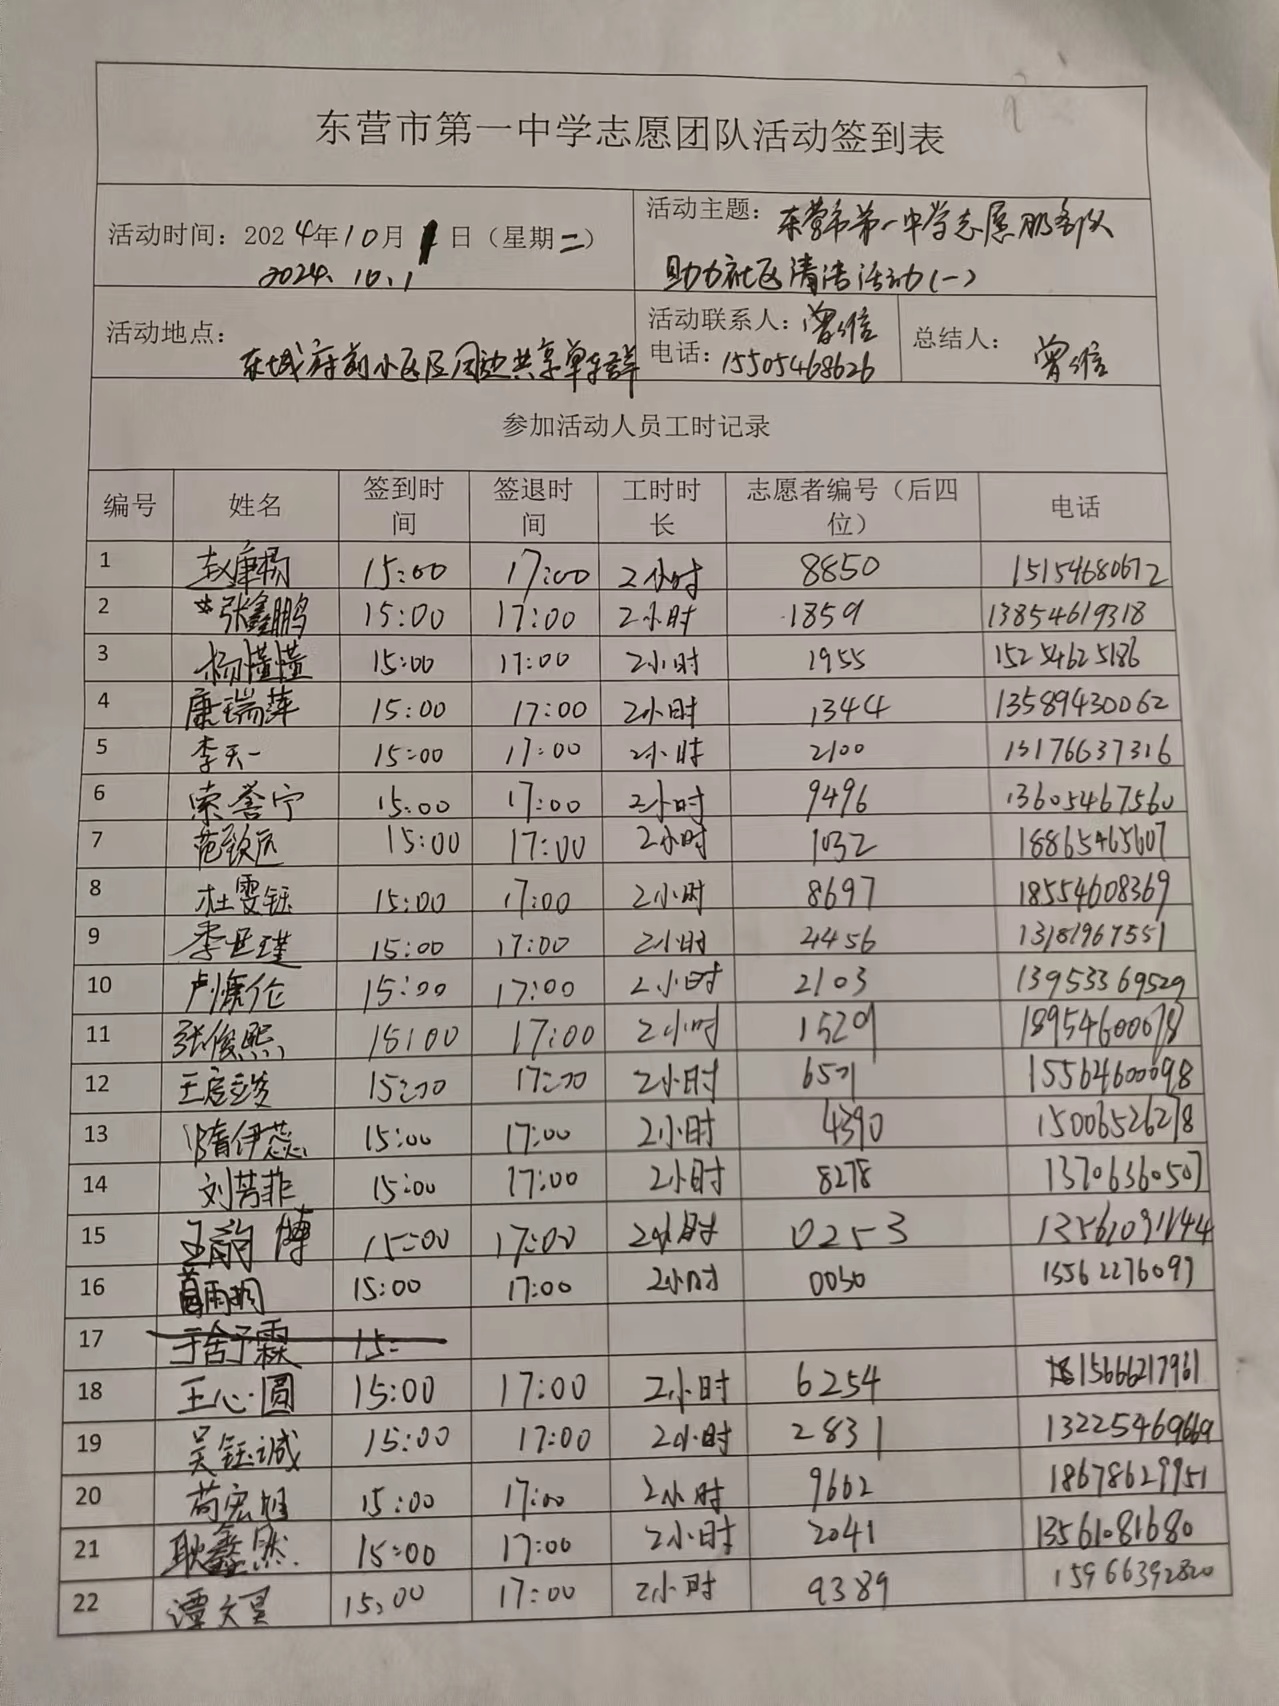 东营市第一中学志愿团队活动签到表
活动时间：2024年10月1日（星期二）
2024.10.1
活动主题：东营市第一中学志愿服务队
助力社区清洁活动(一)
活动地点：
东城府前小区及周边共享单车群
活动联系人：曾信
电话：15505468626
总结人：曾信
参加活动人员工时记录
编号 姓名 签到时间 签退时间 工时时长 志愿者编号（后四位） 电话
1 赵康杨 15:00 17:00 2小时 8850 15154680672
2 张鑫鹏 15:00 17:00 2小时 1859 13854619318
3 杨懂懂 15:00 17:00 2小时 1955 15254625186
4 康瑞萍 15:00 17:00 2小时 1344 13589430062
5 李天一 15:00 17:00 2小时 2100 13176637316
6 索誉宁 15:00 17:00 2小时 9496 13605467560
7 范致远 15:00 17:00 2小时 1032 18865465607
8 杜雯钰 15:00 17:00 2小时 8697 18554608369
9 李昱瑾 15:00 17:00 2小时 2456 13181967551
10 卢慷伦 15:00 17:00 2小时 2103 13953369529
11 张俊熙 15:00 17:00 2小时 1529 18954600078
12 15:00 17:00 2小时 15564600098
13 隋伊蕊 15:00 17:00 2小时 4390 15006526278
14 刘芳菲 15:00 17:00 2小时 8278 13706360507
15 王韵博 15:00 17:00 2小时 0253 13561091144
16 15:00 17:00 2小时 0050 15562276097
17 于舍予霖 15:
18 王心圆 15:00 17:00 2小时 6254 15666217961
19 吴钰诚 15:00 17:00 2小时 2831 13225469669
20 苟宏旭 15:00 17:00 2小时 9662 18678629951
21 耿鑫然 15:00 17:00 2小时 2041 13561081680
22 谭文昊 15:00 17:00 2小时 9389 15966392820